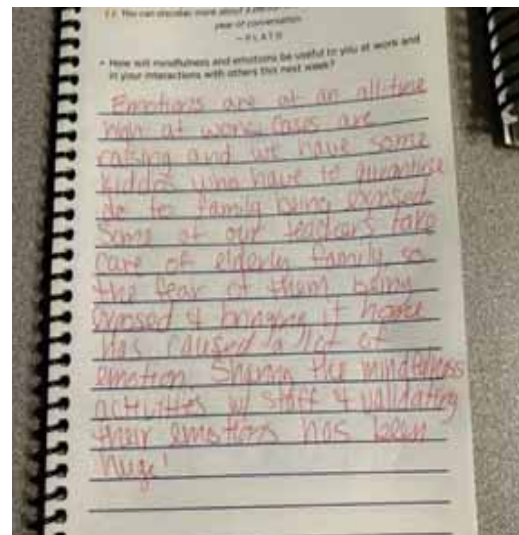 " You can discover more about a person
year of conversation
~PLATO
• How will mindfulness and emotions be useful to you at work and
in your interactions with others this next week?
Emotions are at an all time
high at work. Cases are
raising and we have some
kiddos who have to quarantine
do to family being exposed.
Some of our teachers take
care of elderly family so
the fear of them being
exposed & bringing it home
has caused a lot of
emotion. Sharing the mindfulness
activities w/ staff & validating
their emotions has been
huge!